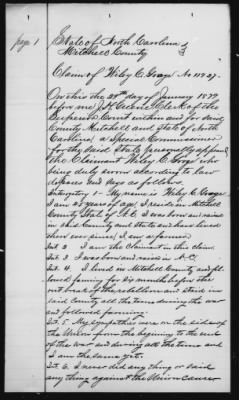 page 1
State of North Carolina
Mitchell County
Claim of Wiley C. Grage No 11927.
On this the 28th day of January 1879
before me J. H. Greene Clerk of the
Superior Court within and for said
County Mitchell and State of North
Carolina a Special Commissioner
for the said State personally appeared
the Claimant Wiley C. Grage who
being duly sworn according to law
deposes and says as follows
Interrogatory 1 - My name is Wiley C. Grage
I am 35 years of age, I reside in Mitchell
County State of N.C. I was born and raised
in said County and State and have lived
there ever since, I am a farmer
Int. 2 I am the Claimant in this claim.
Int. 3 I was born and raised in N.C.
Int. 4. I lived in Mitchell County and fol
lowed farming for six months before the
out break of the rebellion and lived in
said County all the time during the war
and followed farming.
Int. 5. My sympathies were on the side of
the Union from the beginning to the end
of the war and during all the time and
I am the same yet.
Int. 6. I never did any thing or said
any thing against the Union cause